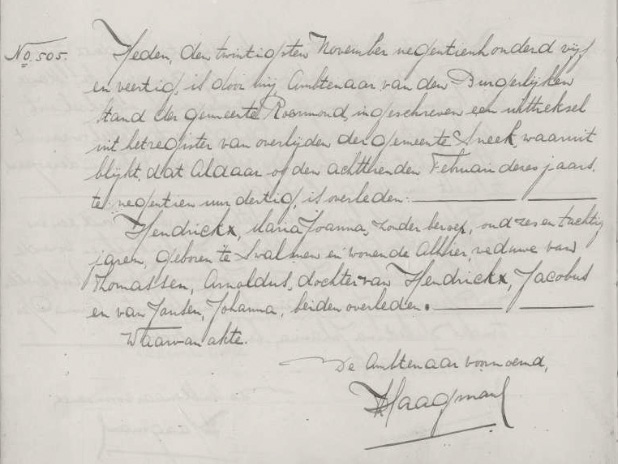 No. 505. Heden, den twintigsten November negentienhonderd vijf
en veertig, is door mij, Ambtenaar van den Burgerlijken
stand der gemeente Roermond, ingeschreven een uittreksel
uit het register van overlijden der gemeente Sneek, waaruit
blijkt, dat Aldaar op den achttienden Februari dezes jaars.
te negentien uur dertig, is overleden:
Hendrickx, Maria Joanna, zonder beroep, oud zes en tachtig
jaren, geboren te Swalmen en wonende Alhier, weduwe van
Thomassen, Arnoldus, dochter van Hendrickx, Jacobus
en van Jansen, Johanna, beiden overleden.
Waarvan akte.
De Ambtenaar voornoemd,
Haagmans